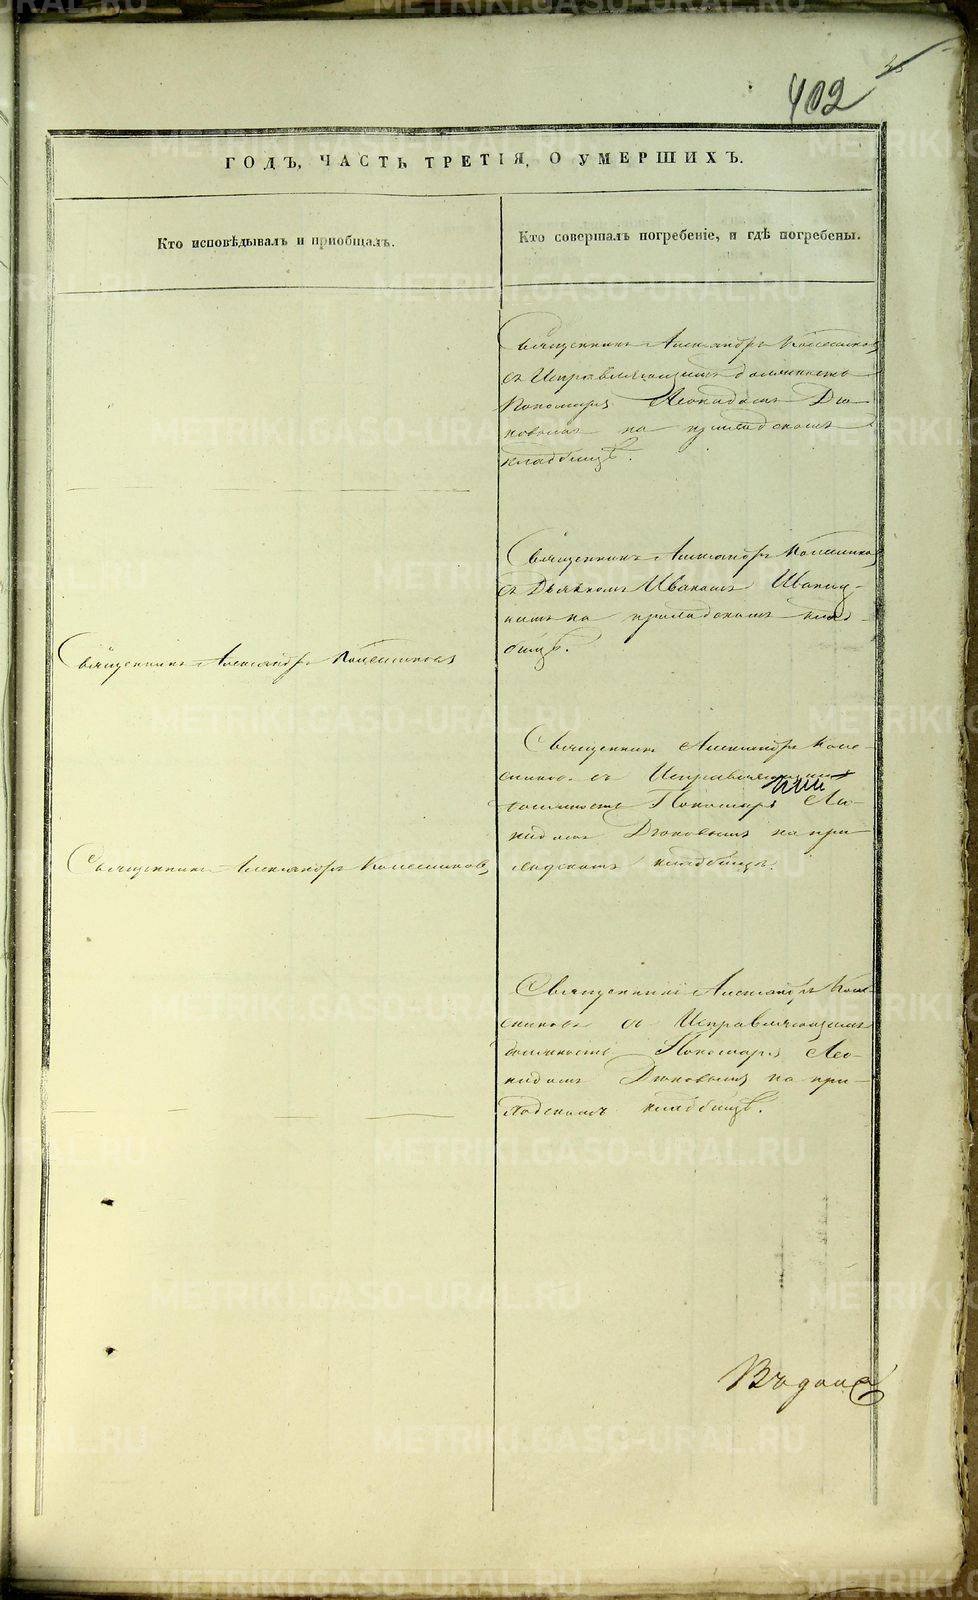 402
ГОДЪ, ЧАСТЬ ТРЕТІЯ, О УМЕРШИХЪ.
Кто исповѣдывалъ и пріобщалъ.
Кто совершалъ погребеніе, и гдѣ погребены.
Священникъ Александръ Колесников
съ Исправляющимъ должность
Пономаря Леонидомъ Дю-
ковымъ на приходскомъ
кладбищѣ.
Священникъ Александръ Колесников
съ Дьячкомъ Иваномъ
на приходскомъ клад-
бищѣ.
Священникъ Александръ Колесниковъ
Священникъ Александръ Коле-
сниковъ съ Исправляющимъ
должность Пономаря Ле-
нидомъ Дюковымъ на при-
ходскомъ кладбищѣ.
Священникъ Александръ Колесниковъ
Священникъ Александръ Коле-
сниковъ съ Исправляющимъ
должность Пономаря Лео-
нидомъ Дюковымъ на при-
ходскомъ кладбищѣ.
METRIKI.GASO-URAL.RU